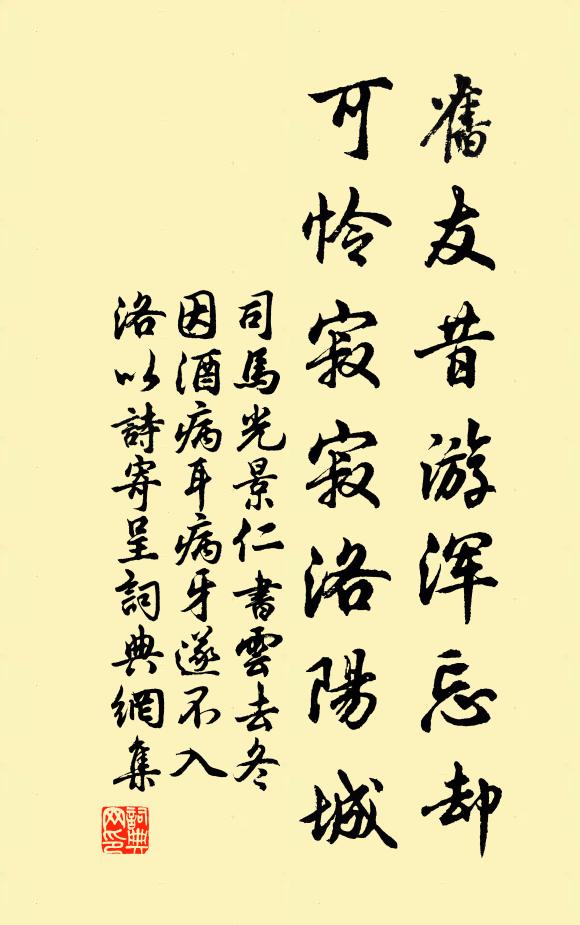 舊友昔游浑忘却
可怜寂寂洛陽城
司馬光景仁書雲去冬
因酒病耳病牙遂不入
洛以詩寄呈詞典網集
詞典
网印